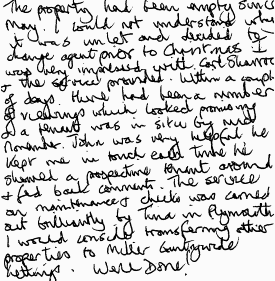 The property had been empty since
May. I could not understand why
it was unlet and decided to
change agent prior to Christmas I
was very impressed with
& the service provided. Within a couple
of days. There had been a number
of viewings which looked promising
& a tenant was in situ by mid
November. John was very helpful he
kept me in touch each time he
showed a prospective tenant around
& fed back comments. The service
on maintenance & checks was carried
out brilliantly by Tina in Plymouth
I would consider transferring other
properties to Miller Countrywide
lettings. Well Done!